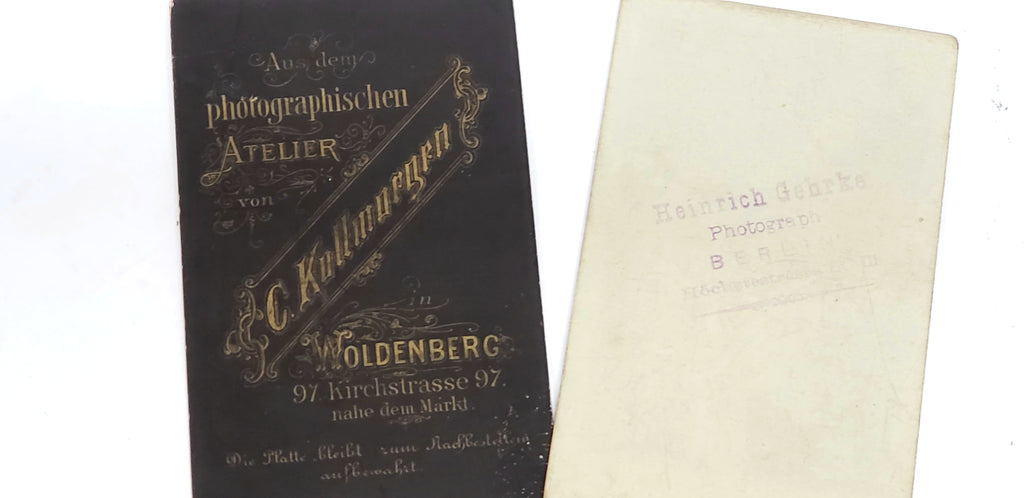 Aus dem
photographischen
ATELIER
von
C. Kullmorgen
in
WOLDENBERG
97. Kirchstrasse 97.
nahe dem Markt.
Die Platte bleibt zum Nachbestellen
aufbewahrt.
Heinrich Gehrke
Photograph